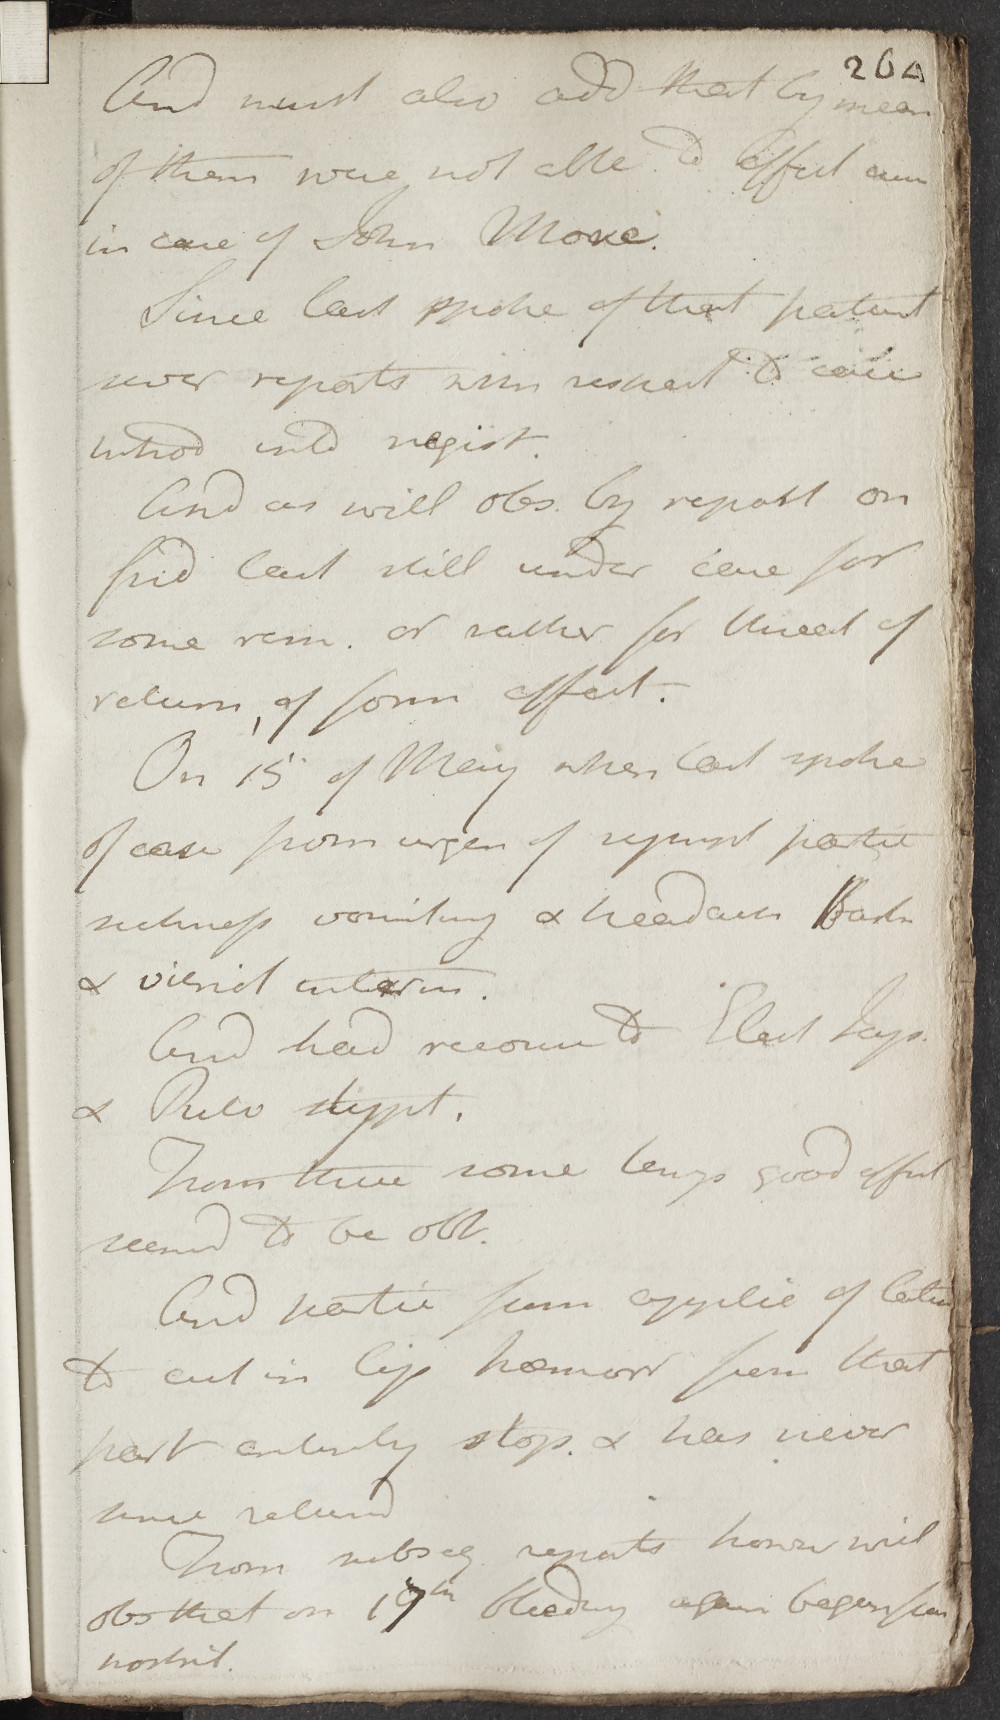 264
And must also add that by mean
of them were not able to effect cure
in case of John Moxie.
Since last spoke of that patient
sever reports with respect to case
introd into regist.
And as will obs. by report on
frid last still under care for
some rem. or rather for threat of
return, of form affect.
On 15 of May when last spoke
of case from urgen of sympt partic
sickness vomiting & headach Bark
& vitriol intermi.
And had recourse to Elect Jap.
& Pulv stypt.
From these some temp good effect
seemd to be obt.
And partic from applic of latter
to cut in lip hæmorr from that
part entirely stop. & has never
since returnd
From subseq reports howev will
obs that on 17th bleeding again began from
nostril.